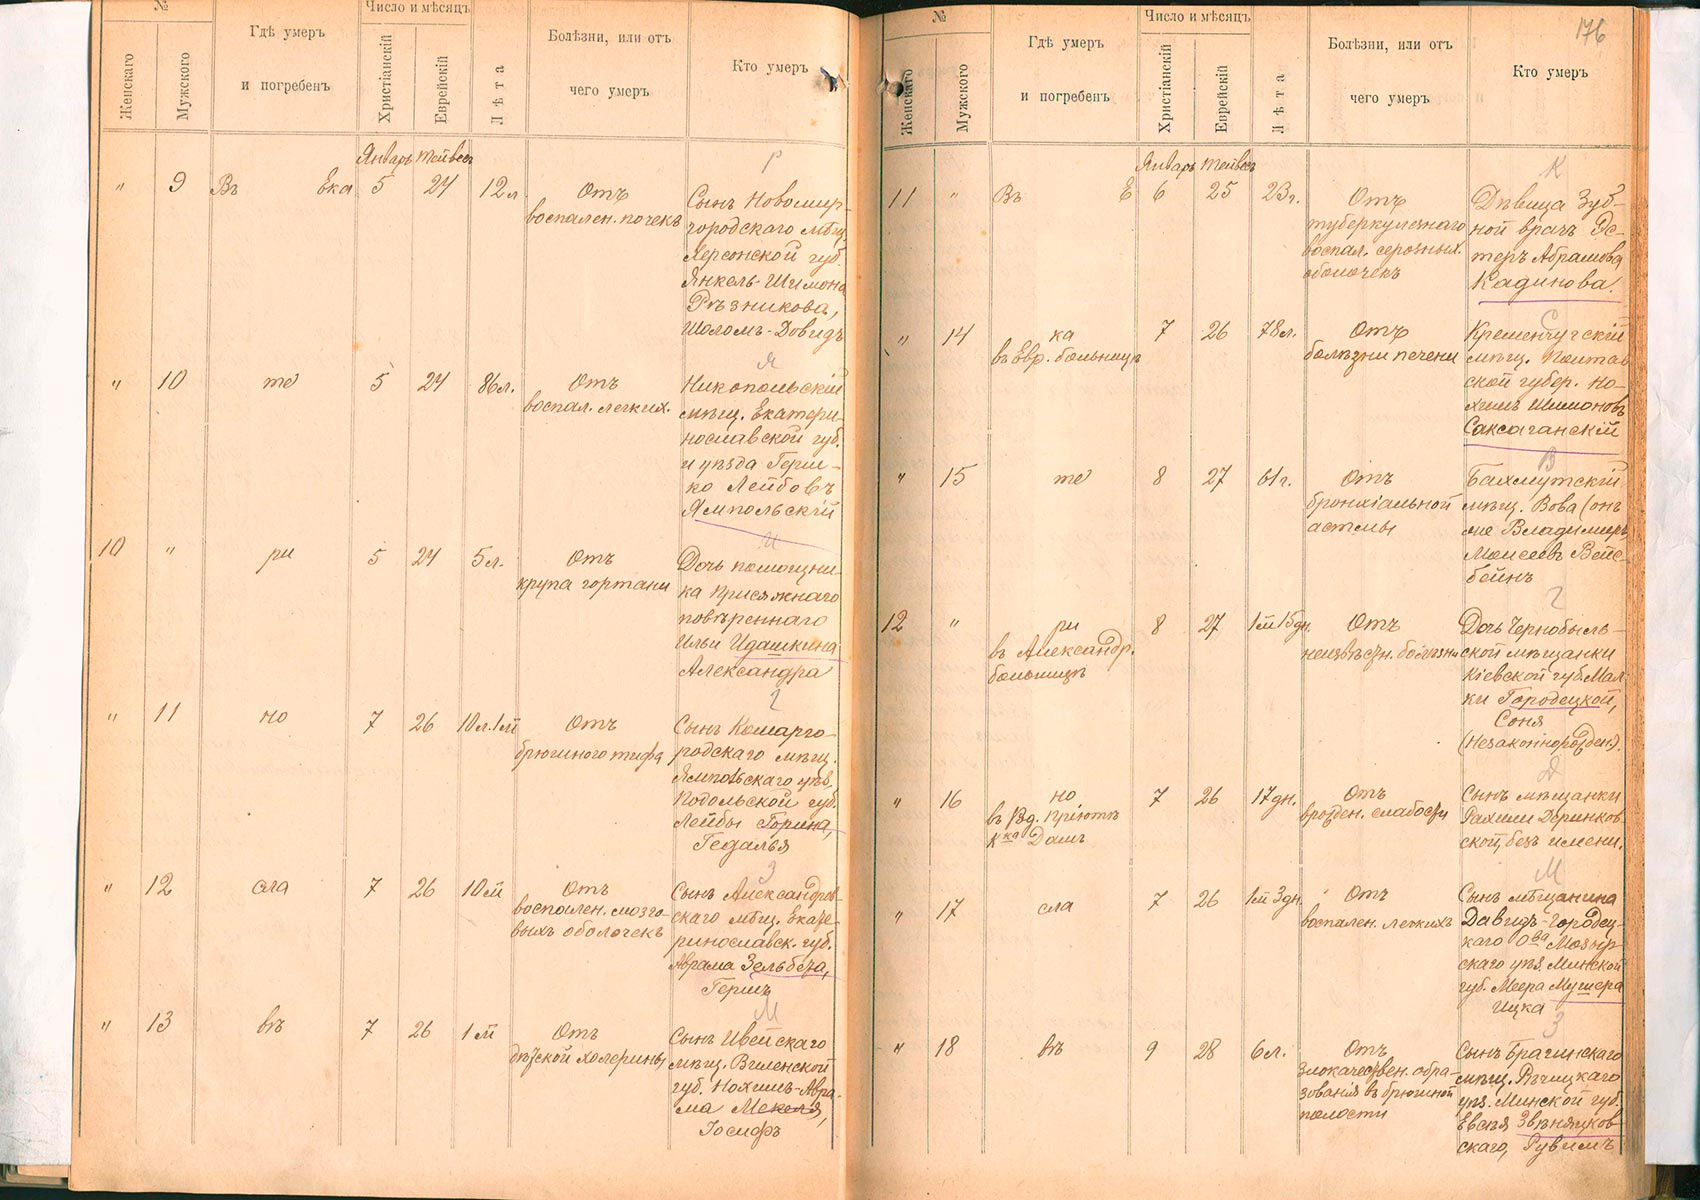 №
Женскаго
Мужского
Гдѣ умеръ
и погребенъ
Число и мѣсяцъ
Христіанскій
Еврейскій
Лѣта
Болѣзни, или отъ
чего умеръ
Кто умеръ
Январь Тейвесъ
Р
" 9 Въ Ека 5 24 12 л.
Отъ
воспален. почекъ
Сынъ Новомир-
городскаго мѣщ.
Херсонской губ.
Янкель-Шимона
Рѣзникова,
Шоломъ-Довидъ
Я
" 10 те 5 24 86 л.
Отъ
воспал. легких.
Никопольскій
мѣщ. Екатери-
нославской губ.
и уѣзда Герш-
ко Лейбовъ
Ямпольскій
И
10 " ри 5 24 5 л.
Отъ
крупа гортани
Дочь помощни-
ка присяжнаго
повѣреннаго
Ильи Идашкина
Александра
Г
" 11 но 7 26 10 л. 1 м
Отъ
брюшного тифа
Сынъ Комарго-
родскаго мѣщ.
Ямпольскаго уѣз.
Подольской губ.
Лейбы Горина,
Гедалья
З
" 12 сла 7 26 10 м
Отъ
воспален. мозго-
выхъ оболочекъ
Сынъ Александров-
скаго мѣщ. Екате-
ринославск. губ.
Аврама Зельбета,
Гершъ
М
" 13 въ 7 26 1 м
Отъ
дѣтской холерины
Сынъ Ивейскаго
мѣщ. Виленской
губ. Нохимъ-Авра-
ма Мекеля,
Іосифъ
176
№
Женскаго
Мужского
Гдѣ умеръ
и погребенъ
Число и мѣсяцъ
Христіанскій
Еврейскій
Лѣта
Болѣзни, или отъ
чего умеръ
Кто умеръ
Январь Тейвесъ
К
11 " Въ Е 6 25 23 г.
Отъ
туберкулезнаго
воспал. серозных.
оболочекъ
Дѣвица Зуб-
ной врачъ Эс-
теръ Абрамова
Кадинова.
С
" 14 ка 7 26 78 л.
въ Евр. больницѣ
Отъ
болѣзни печени
Кременчугскій
мѣщ. Полтав-
ской губер. Но-
химъ Шимоновъ
Саксаганскій
В
" 15 те 8 27 61 г.
Отъ
бронхіальной
астмы
Бахмутскій
мѣщ. Вова (онъ
же Владимиръ
Моисеевъ Вейс-
бейнъ
Г
12 " ри 8 27 1 м 15 дн.
въ Александр.
больницѣ
Отъ
неизвѣстн. болѣзни
Дочь Чернобыль-
ской мѣщанки
Кіевской губ. Мал-
ки Городецкой,
Соня
(Незаконнорожден.).
Д
" 16 но 7 26 17 дн.
въ Род. Пріютѣ
Домъ
Отъ
врожден. слабости
Сынъ мѣщанки
Рахили Доринков-
ской, безъ имени.
М
" 17 сла 7 26 1 м 3 дн.
Отъ
воспален. легкихъ
Сынъ мѣщанина
Давидъ-Городец-
каго О-ва Мозыр-
скаго уѣз. Минской
губ. Меера Мушера
Ицка
З
" 18 въ 9 28 6 л.
Отъ
злокачествен. обра-
зованія въ брюшной
полости
Сынъ Брагинскаго
мѣщ. Рѣчицкаго
уѣз. Минской губ.
Евсѣя Звѣняцков-
скаго, Рувимъ